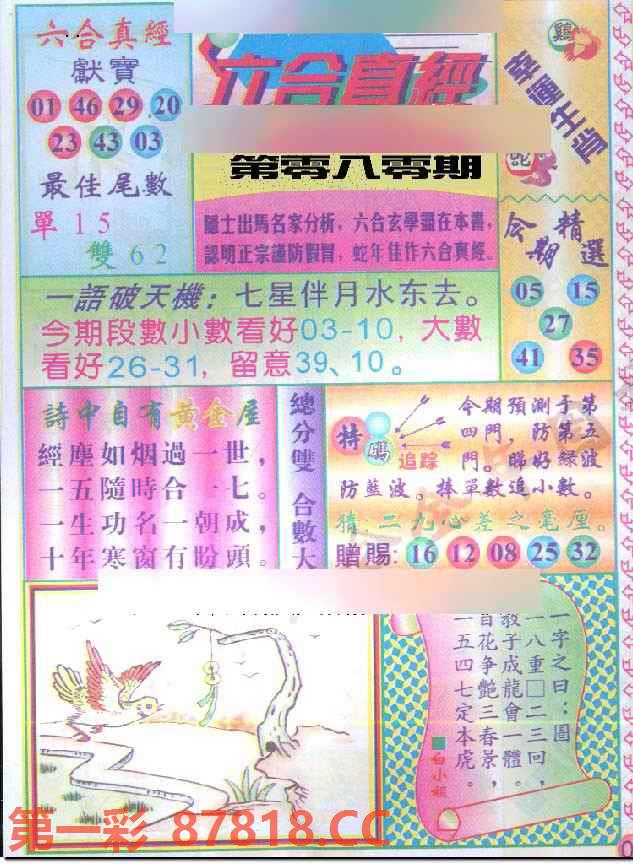 六合真經
獻寶
01 46 29 20
23 43 03
最佳尾數
單 1 5
雙 6 2
六合真經
第零八零期
隱士出馬名家分析，六合玄學盡在本書，
認明正宗謹防假冒，蛇年佳作六合真經。
雞
蛇
今期精選
05 15
27
41 35
一語破天機：七星伴月水东去。
今期段數小數看好03-10，大數
看好26-31，留意39、10。
詩中自有黃金屋
經塵如烟過一世，
一五隨時合一七。
一生功名一朝成，
十年寒窗有盼頭。
總分雙 合數大
特碼
追踪
今期預測于第
四門，防第五
門。睇好綠波
防藍波。捧單數追小數。
猜：二九心差之毫厘。
贈賜：16 12 08 25 32
一字之曰：圖
一八重□二三回，
教子成龍會一體。
百花争艷三春景，
一五四七定本虎。
白小姐
第一彩 87818.CC